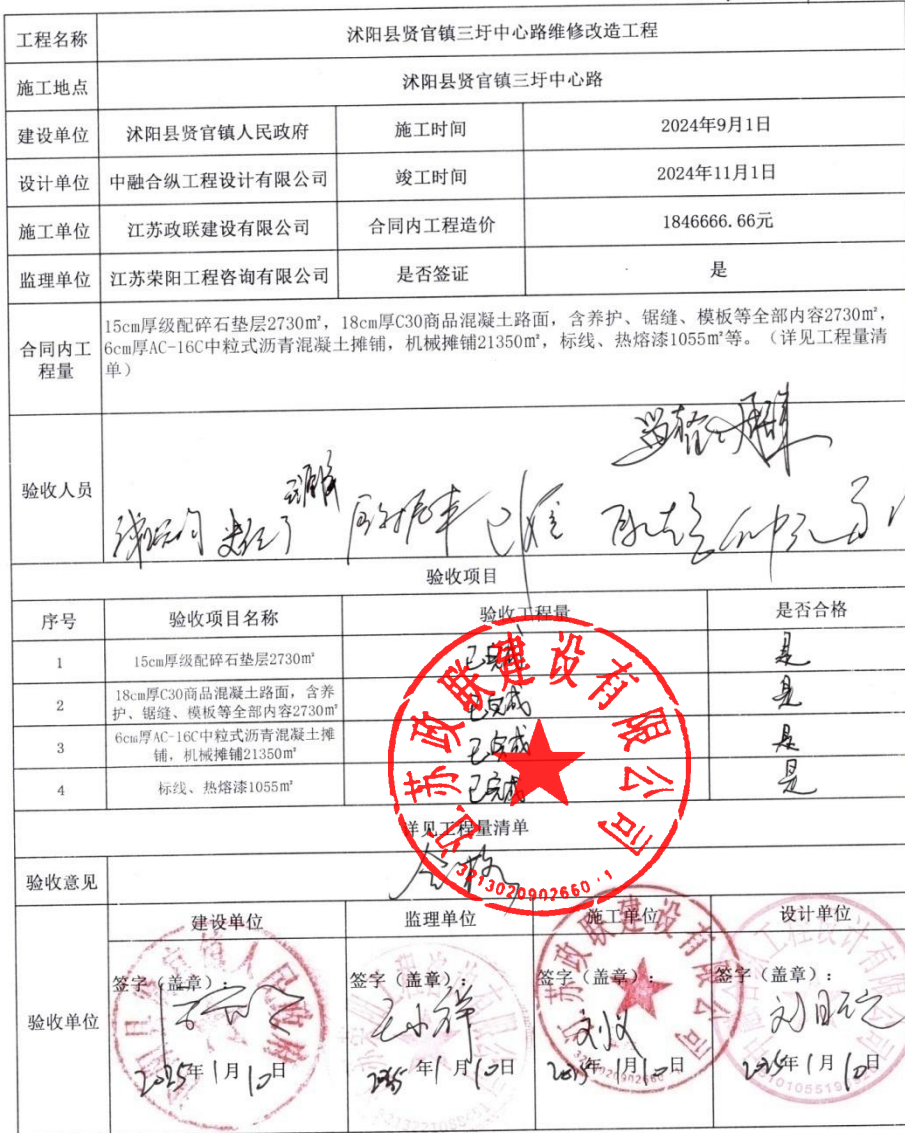 工程名称 沭阳县贤官镇三圩中心路维修改造工程
施工地点 沭阳县贤官镇三圩中心路
建设单位 沭阳县贤官镇人民政府 施工时间 2024年9月1日
设计单位 中融合纵工程设计有限公司 竣工时间 2024年11月1日
施工单位 江苏政联建设有限公司 合同内工程造价 1846666.66元
监理单位 江苏荣阳工程咨询有限公司 是否签证 是
合同内工程量
15cm厚级配碎石垫层2730㎡，18cm厚C30商品混凝土路面，含养护、锯缝、模板等全部内容2730㎡，
6cm厚AC-16C中粒式沥青混凝土摊铺，机械摊铺21350㎡，标线、热熔漆1055㎡等。（详见工程量清
单）
验收人员
验收项目
序号 验收项目名称 验收工程量 是否合格
1 15cm厚级配碎石垫层2730㎡ 已完成 是
2 18cm厚C30商品混凝土路面，含养
护、锯缝、模板等全部内容2730㎡ 已完成 是
3 6cm厚AC-16C中粒式沥青混凝土摊
铺，机械摊铺21350㎡ 已完成 是
4 标线、热熔漆1055㎡ 已完成 是
详见工程量清单
江苏政联建设有限公司
验收意见 合格
验收单位
建设单位 监理单位 施工单位 设计单位
签字（盖章）： 签字（盖章）： 签字（盖章）： 签字（盖章）：
2025年1月10日 2025年1月10日 2025年1月10日 2025年1月10日
江苏政联建设有限公司